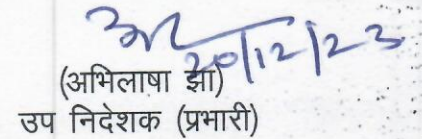 20/12/23
(अभिलाषा झा)
उप निदेशक (प्रभारी)